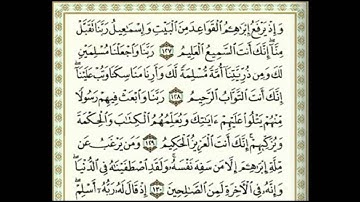 وَإِذْ يَرْفَعُ إِبْرَٰهِـۧمُ ٱلْقَوَاعِدَ مِنَ ٱلْبَيْتِ وَإِسْمَـٰعِيلُ رَبَّنَا تَقَبَّلْ
مِنَّآ ۖ إِنَّكَ أَنتَ ٱلسَّمِيعُ ٱلْعَلِيمُ ١٢٧ رَبَّنَا وَٱجْعَلْنَا مُسْلِمَيْنِ
لَكَ وَمِن ذُرِّيَّتِنَآ أُمَّةً مُّسْلِمَةً لَّكَ وَأَرِنَا مَنَاسِكَنَا وَتُبْ عَلَيْنَآ ۖ
إِنَّكَ أَنتَ ٱلتَّوَّابُ ٱلرَّحِيمُ ١٢٨ رَبَّنَا وَٱبْعَثْ فِيهِمْ رَسُولًا
مِّنْهُمْ يَتْلُوا۟ عَلَيْهِمْ ءَايَـٰتِكَ وَيُعَلِّمُهُمُ ٱلْكِتَـٰبَ وَٱلْحِكْمَةَ
وَيُزَكِّيهِمْ ۚ إِنَّكَ أَنتَ ٱلْعَزِيزُ ٱلْحَكِيمُ ١٢٩ وَمَن يَرْغَبُ عَن
مِّلَّةِ إِبْرَٰهِـۧمَ إِلَّا مَن سَفِهَ نَفْسَهُۥ ۚ وَلَقَدِ ٱصْطَفَيْنَـٰهُ فِى ٱلدُّنْيَا ۖ
وَإِنَّهُۥ فِى ٱلْـَٔاخِرَةِ لَمِنَ ٱلصَّـٰلِحِينَ ١٣٠ إِذْ قَالَ لَهُۥ رَبُّهُۥٓ أَسْلِمْ ۖ